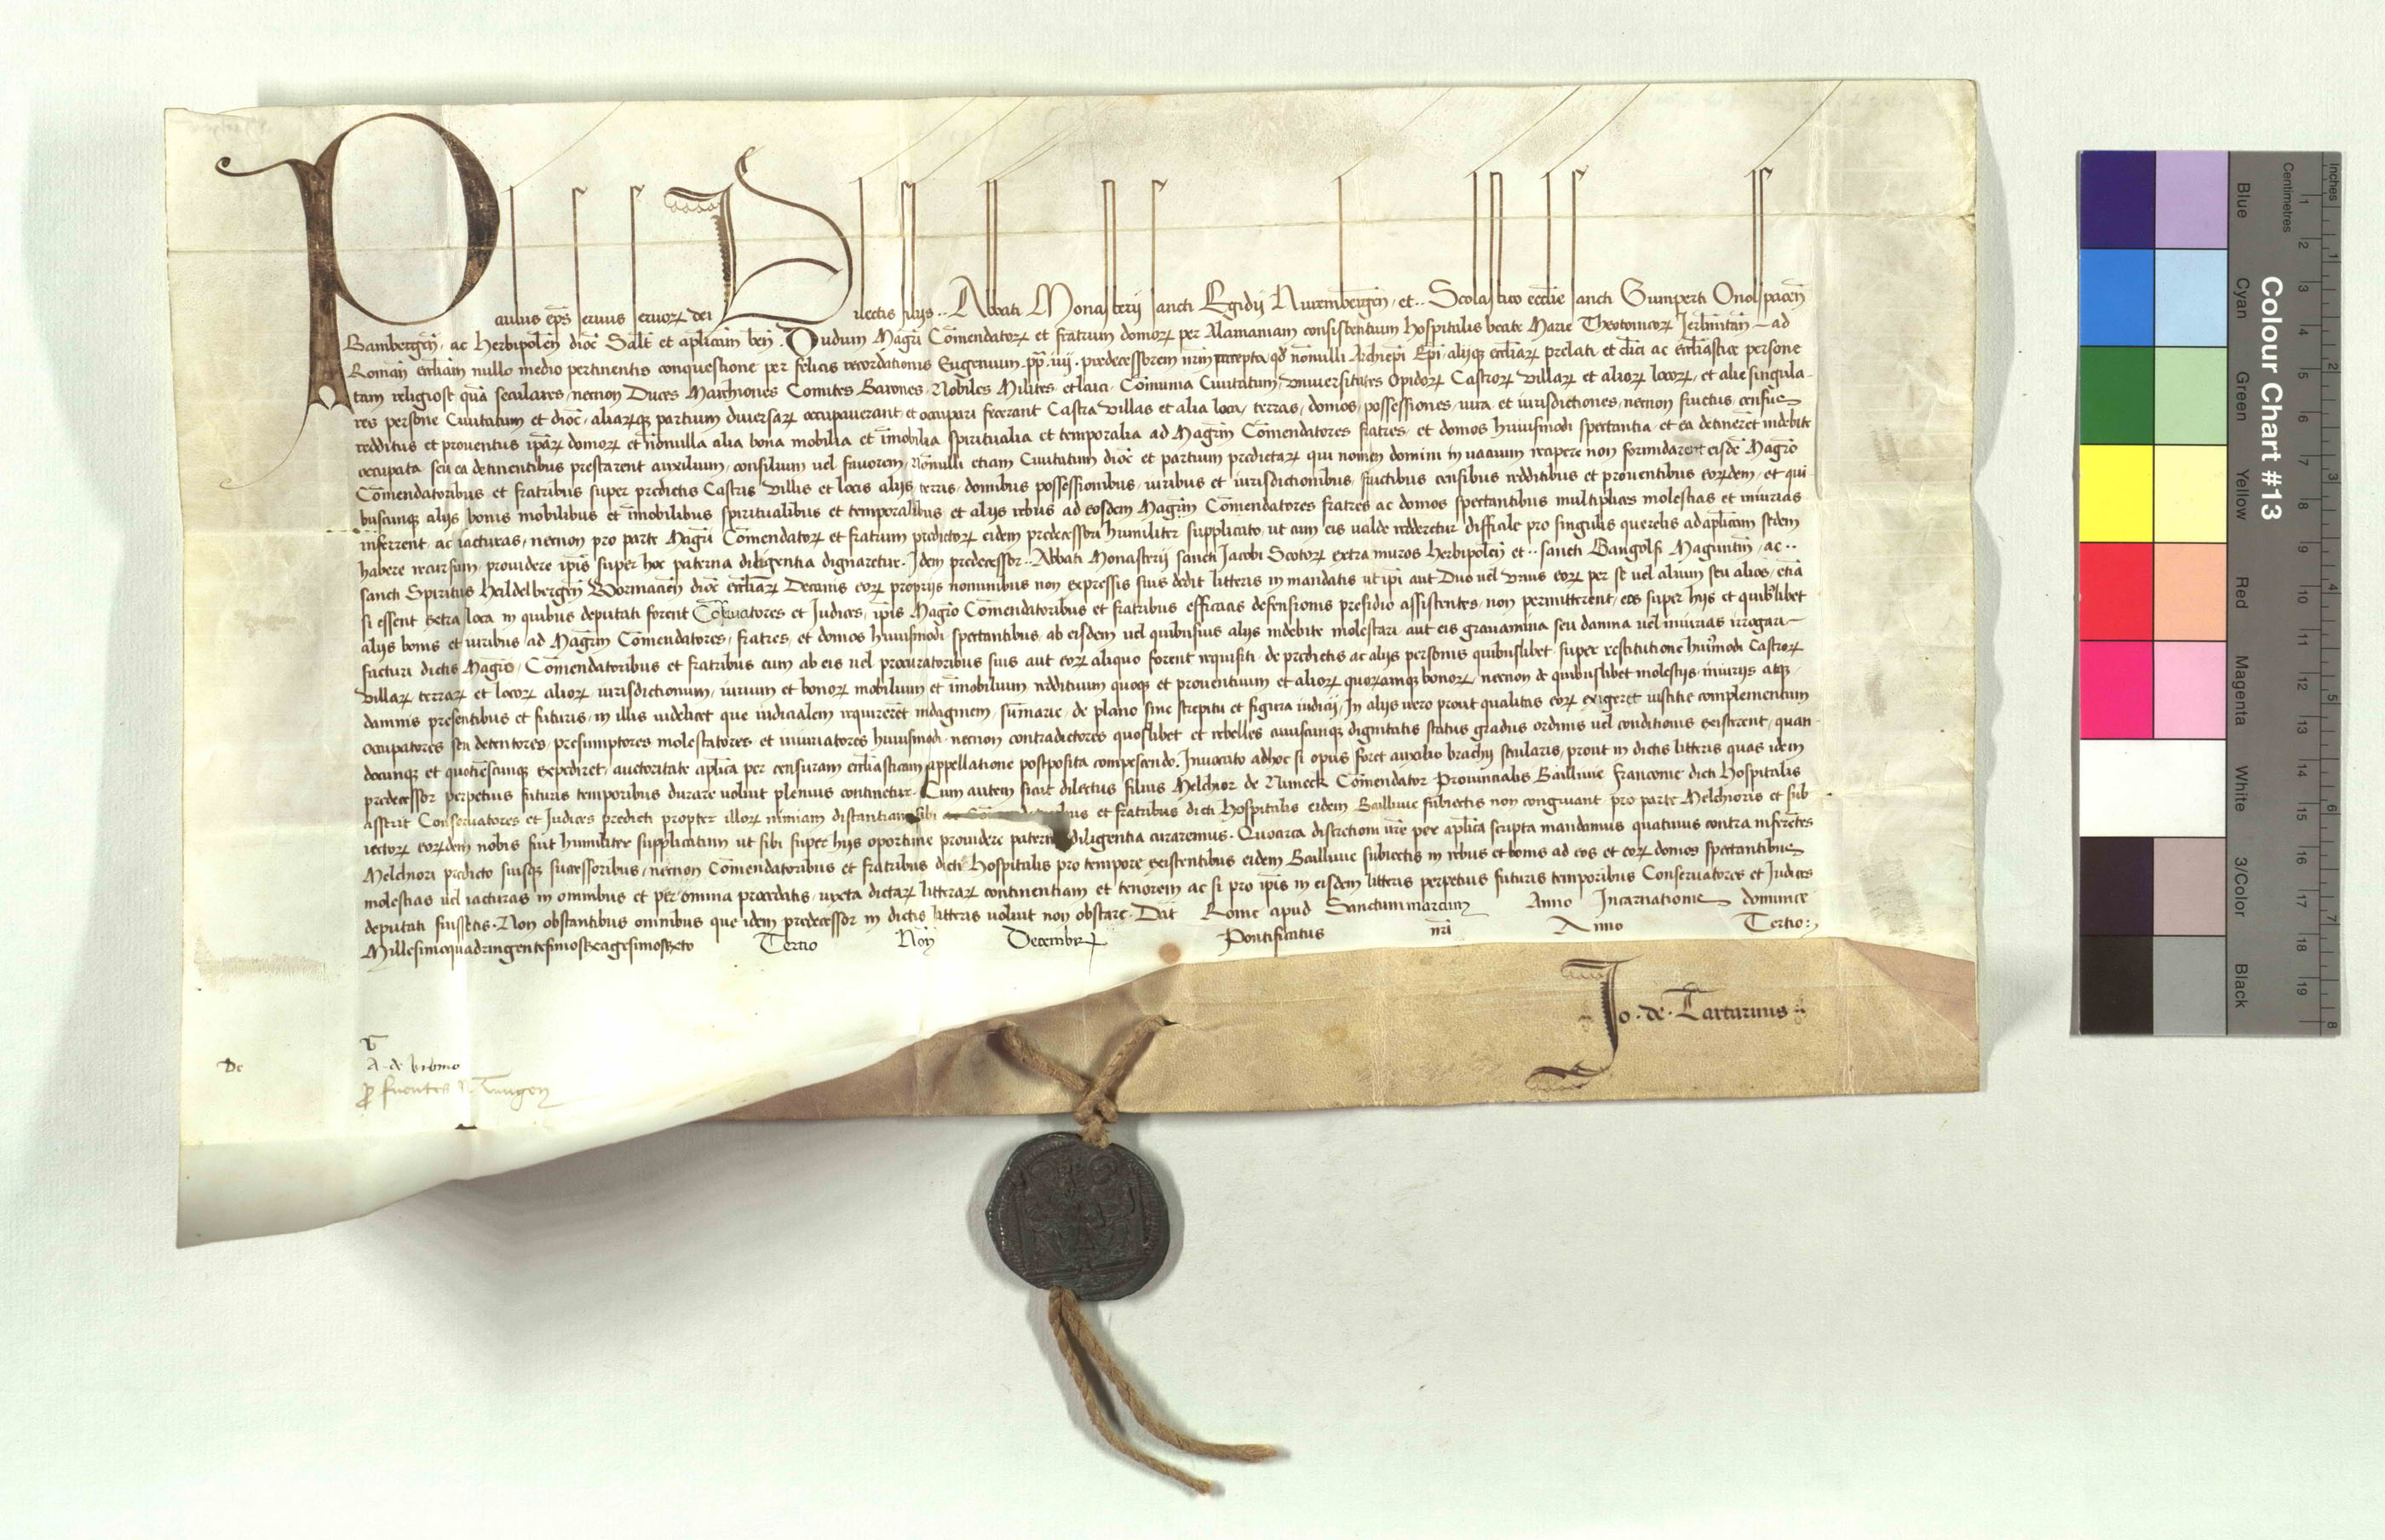 Paulus ep̄s seruus seruoꝝ dei Dilectis filijs .. Abbati Monasterij sancti Egidij Nurembergen̄ et .. Scolastico ecclie sancti Gumperti Onolspacen̄
Bambergen̄ ac Herbipolen̄ dioc̄ Salt̄ et aplicam ben̄ . Dudum Magr̄i Com̄endatoꝝ et fratrum domoꝝ per Alamaniam consistentium hospitalis beate Marie Theotonicoꝝ Jerlimitan̄ ad
Roman̄ eccliam nullo medio pertinentis conquestione per felicis recordationis Eugenium .pp̄. iiij. predecessorem nr̄m percepta, qd̄ nonnulli Archiepi Epi, alijqꝫ eccliaꝝ prelati, et clici ac eccliastice persone
tam religiose quā seculares, necnon Duces Marchiones Comites Barones, Nobiles Milites, et laici, Com̄unia Ciuitatum, vniuersitates Opidoꝝ Castroꝝ villaꝝ et alioꝝ locoꝝ, et alie singula-
res persone Ciuitatum et dioc̄, aliaꝝqꝫ partium diuersaꝝ occupauerant et occupari fecerant Castra villas et alia loca, terras, domos, possessiones, iura et iurisdictiones, necnon fructus census
redditus et prouentus ip̄aꝝ domoꝝ et nōnulla alia bona mobilia et im̄obilia spiritualia et temporalia ad Magr̄m Com̄endatores fratres, et domos huiusmodi spectantia, et ea detinerēt indebite
occupata seu ea detinentibus prestarent auxilium, consilium uel fauorem, Nōnulli etiam Ciuitatum dioc̄ et partium predictaꝝ qui nomen domini in uacuum recipere non formidarent eisdē Magr̄o
Com̄endatoribus et fratribus super predictis Castris villis et locis alijs, terris, domibus possessionibus, iuribus et iurisdictionibus, fructibus censibus redditibus et prouentibus eoꝝdem, et qui-
buscunqꝫ alijs bonis mobilibus et im̄obilibus spiritualibus et temporalibus et alijs rebus ad eosdem Magr̄m Com̄endatores fratres ac domos spectantibus multiplices molestias et iniurias
inferrent, ac iacturas, necnon pro parte Magr̄i Com̄endatoꝝ et fratrum predictoꝝ eidem predecessori humiliter supplicato, ut cum eis ualde redderetur difficile pro singulis querelis ad aplicam sedem
habere recursum, prouidere ip̄is super hoc paterna diligentia dignaretur. Idem predecessor .. Abbati Monasterij sancti Jacobi Scotoꝝ extra muros Herbipolen̄ et .. sancti Gangolfi Maguntin̄, ac ..
sancti Spiritus Heildelbergen̄ Wormacien̄ dioc̄ eccliaꝝ Decanis eoꝝ proprijs nominibus non expressis suis dedit litteris in mandatis ut ip̄i aut Duo uel vnus eoꝝ per se uel alium seu alios, etiā
si essent extra loca in quibus deputati forent Cōseruatores et Judices, ip̄is Magr̄o Com̄endatoribus et fratribus efficacis defensionis presidio assistentes, non permitterent, eos super hijs et quibuslibet
alijs bonis et iuribus ad Magr̄m Com̄endatores, fratres, et domos huiusmodi spectantibus, ab eisdem uel quibusuis alijs indebite molestari aut eis grauamina seu damna uel iniurias irrogari
facturi dictis Magr̄o, Com̄endatoribus et fratribus cum ab eis uel procuratoribus suis aut eoꝝ aliquo forent requisiti de predictis ac alijs personis quibuslibet super restitutione huiūmodi Castroꝝ
villaꝝ terraꝝ et locoꝝ alioꝝ iurisdictionum, iurium et bonoꝝ mobilium et im̄obilium reddituum quoqꝫ et prouentuum et alioꝝ quoꝝcumqꝫ bonoꝝ, necnon de quibuslibet molestijs iniurijs atqꝫ
damnis presentibus et futuris, in illis uidelicet que iudicialem requirerēt indaginem, sum̄arie, de plano sine strepitu et figura iudicij, In alijs uero prout qualitas eoꝝ exigeret iustitie complementum
Occupatores seu detentores, presumptores molestatores et iniuriatores huiusmodi, necnon contradictores quoslibet et rebelles cuiuscunqꝫ dignitatis status gradus ordinis uel conditionis existerent, quan-
docunqꝫ et quotiescunqꝫ expediret, auctoritate aplica per censuram eccliasticam appellatione postposita compescendo. Inuocato adhoc si opus foret auxilio brachij secularis, prout in dictis litteris quas idem
predecessor perpetuis futuris temporibus durare uoluit plenius continetur. Cum autem sicut dilectus filius Melchior de Nuneck Com̄endator Prouincialis Bailliuie Franconie dicti Hospitalis
asserit Conseruatores et Judices predicti propter illoꝝ nimiam distantiam sibi ac et fratribus dicti Hospitalis eidem Bailliuie subiectis non congruant pro parte Melchioris et sub-
iectoꝝ eoꝝdem nobis fuit humiliter supplicatum ut sibi super hijs oportune prouidere paterna diligentia curaremus. Quocirca discretioni ur̄e per aplica scripta mandamus quatinus contra inferētes
Melchiori predicto suisqꝫ successoribus, necnon Com̄endatoribus et fratribus dicti Hospitalis pro tempore existentibus eidem Bailliuie subiectis in rebus et bonis ad eos et eoꝝ domos spectantibus
molestias uel iacturas in omnibus et per omnia procedatis, iuxta dictaꝝ litteraꝝ continentiam et tenorem ac si pro ip̄is in eisdem litteris perpetuis futuris temporibus Conseruatores et Judices
deputati fuissetis. Non obstantibus omnibus que idem predecessor in dictis litteris uoluit non obstare. Dat̄ Rome apud Sanctummarcum Anno Incarnationis dominice
Millesimoquadringentesimosexagesimosexto Tertio Noñ Decembr̄ Pontificatus nr̄i Anno Tertio:
Jo. de. Tartarinis
De
A. de vrbino
Colour Chart #13
Blue
Cyan
Green
Yellow
Red
Magenta
White
3/Color
Black
Inches
Centimetres
1 2 3 4 5 6 7 8 9 10 11 12 13 14 15 16 17 18 19
1 2 3 4 5 6 7 8